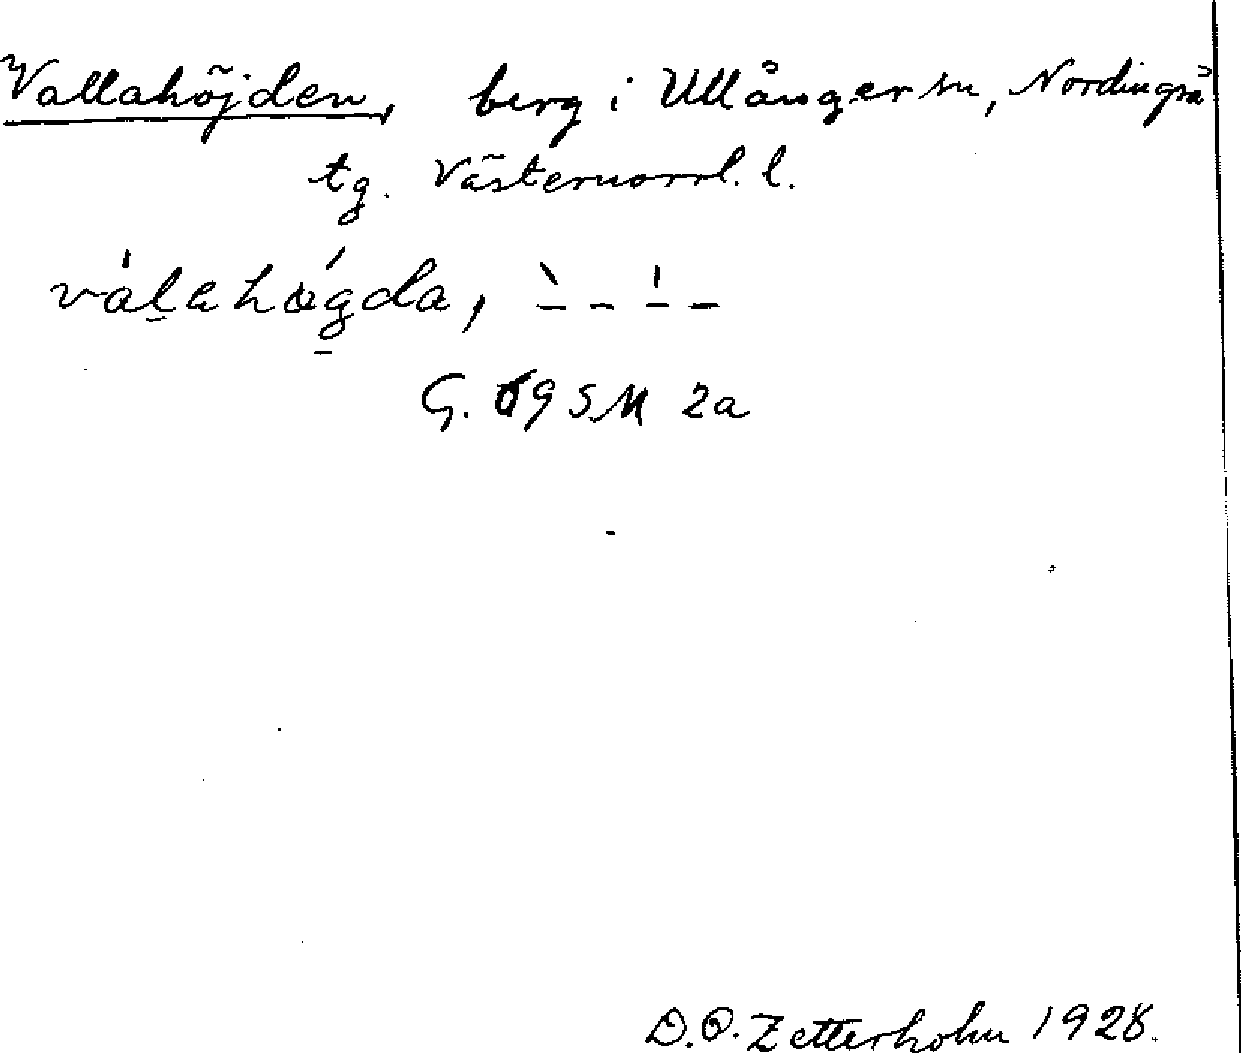 Vallahöjden, berg i Ullånger sn, Nordingrå
tg. Västernorrl. l.
válahǿgda, `– – '– –
G. 69 SM 2a
D.O. Zetterholm 1928.